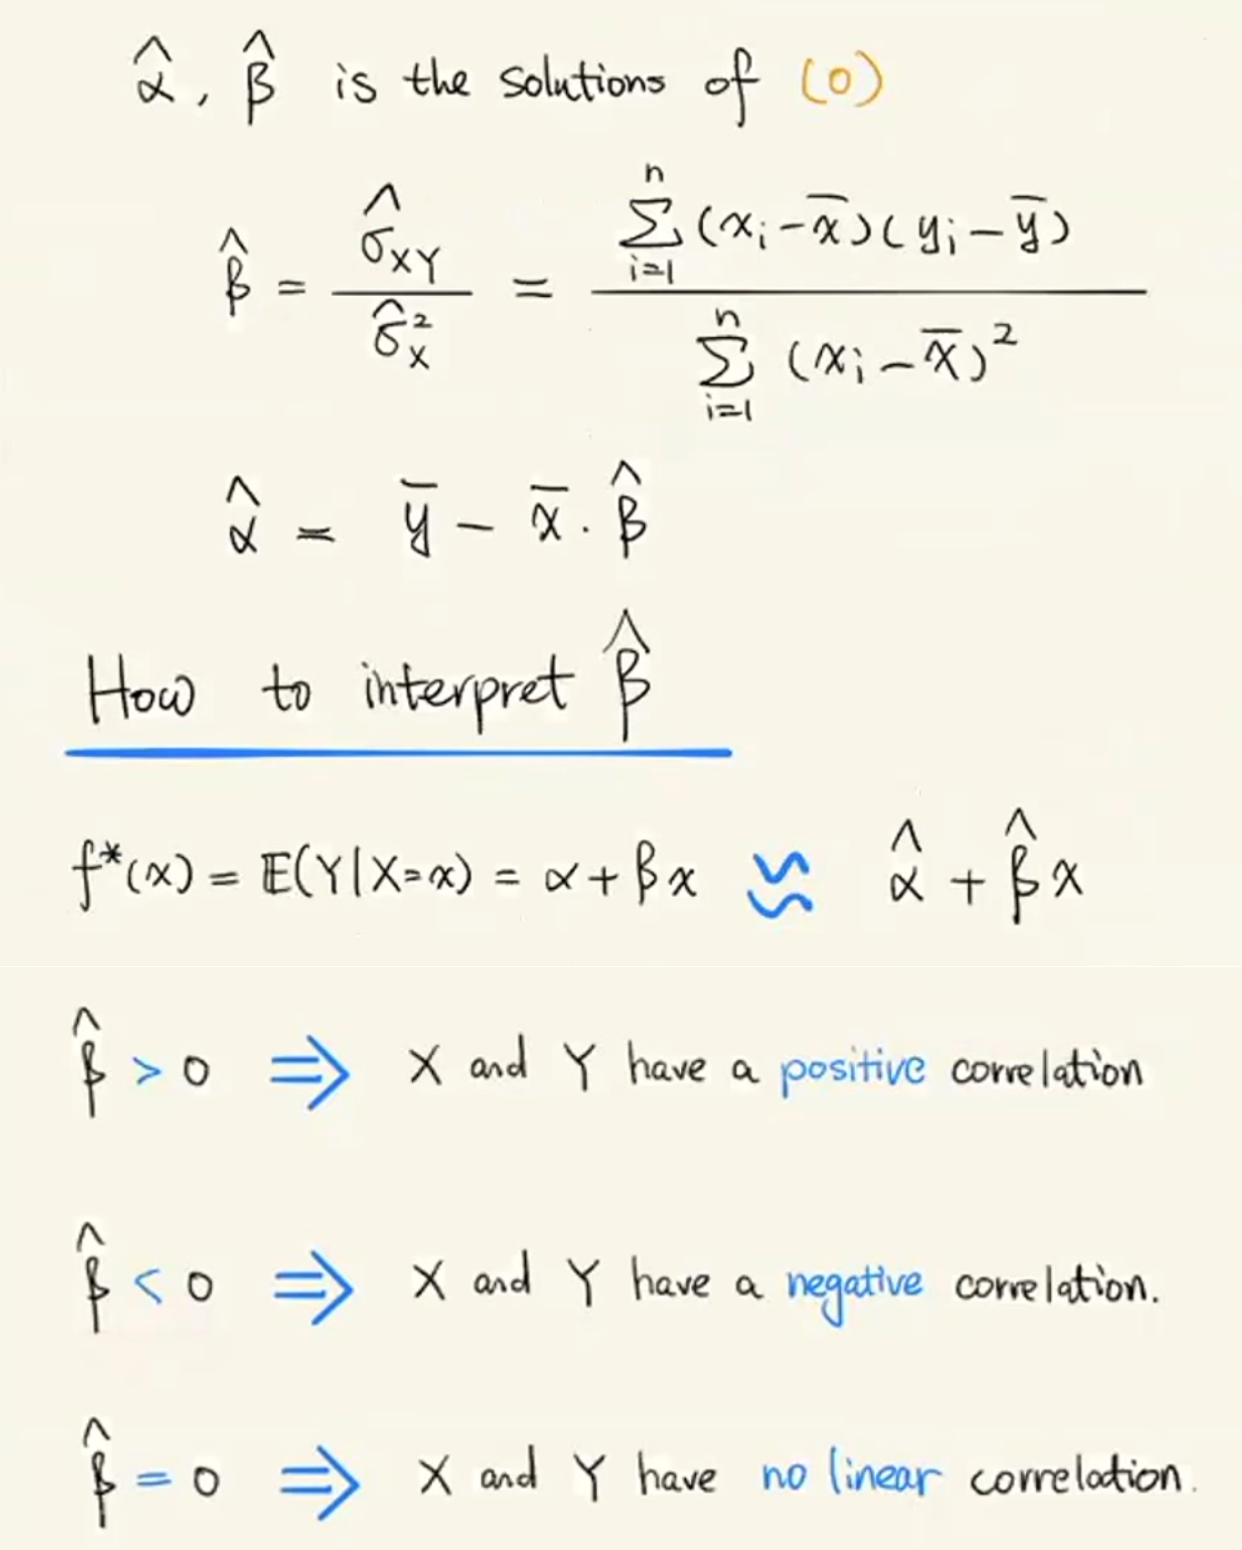 α̂, β̂ is the solutions of (0)
β̂ = σ̂_XY / σ̂²_X = ∑_{i=1}^{n} (x_i − x̄)(y_i − ȳ) / ∑_{i=1}^{n} (x_i − x̄)²
α̂ = ȳ − x̄ · β̂
How to interpret β̂
f*(x) = 𝔼(Y|X=x) = α + βx ≈ α̂ + β̂x
β̂ > 0 ⇒ X and Y have a positive correlation
β̂ < 0 ⇒ X and Y have a negative correlation.
β̂ = 0 ⇒ X and Y have no linear correlation.